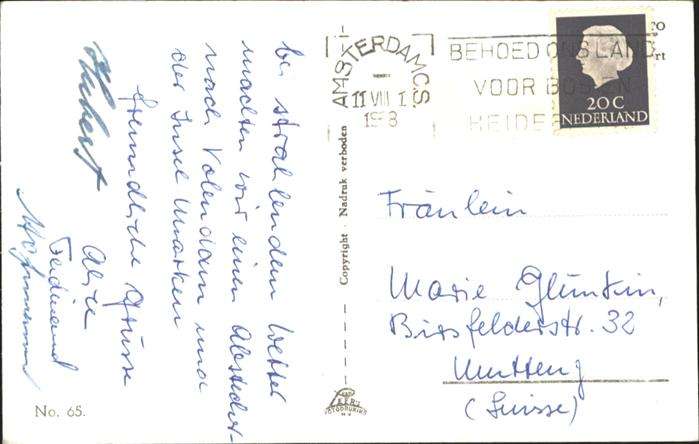 bei strahlendem Wetter
machten wir einen Abstecher
nach Volendam und
der Insel Marken
freundliche Grüsse
Hubert
Alice
Ferdinand
No. 65.
Copyright - Nadruk verboden
AMSTERDAM C.S.
11 VIII 1
1958
BEHOED ONS LAND
VOOR BOS EN
HEIDE
20 C
NEDERLAND
Fräulein
Marie Glüntin,
Birsfelderstr. 32
Muttenz
(Suisse)